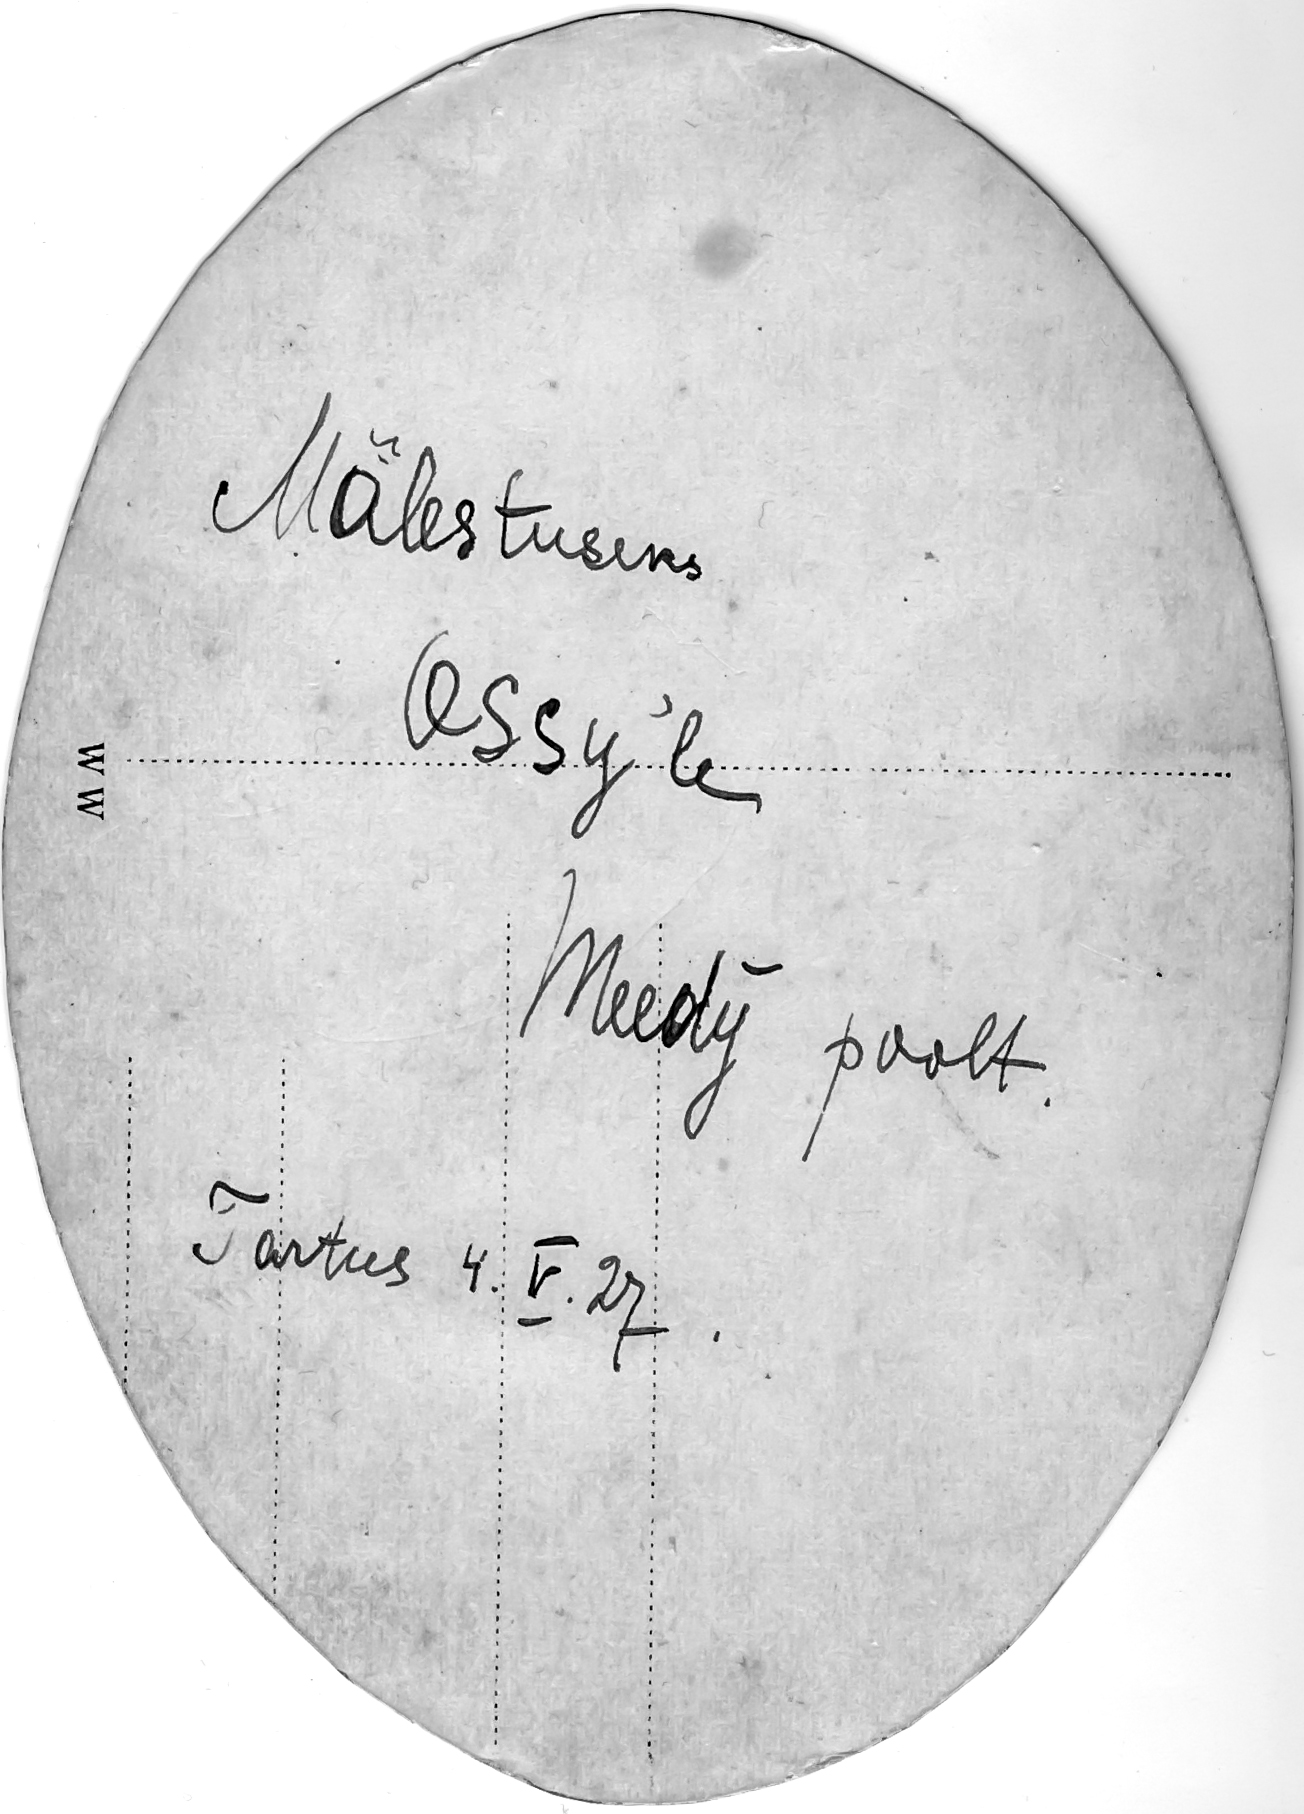 Mälestuseks
Ossy'le
Meedy poolt.
Tartus 4. V. 27.
W W